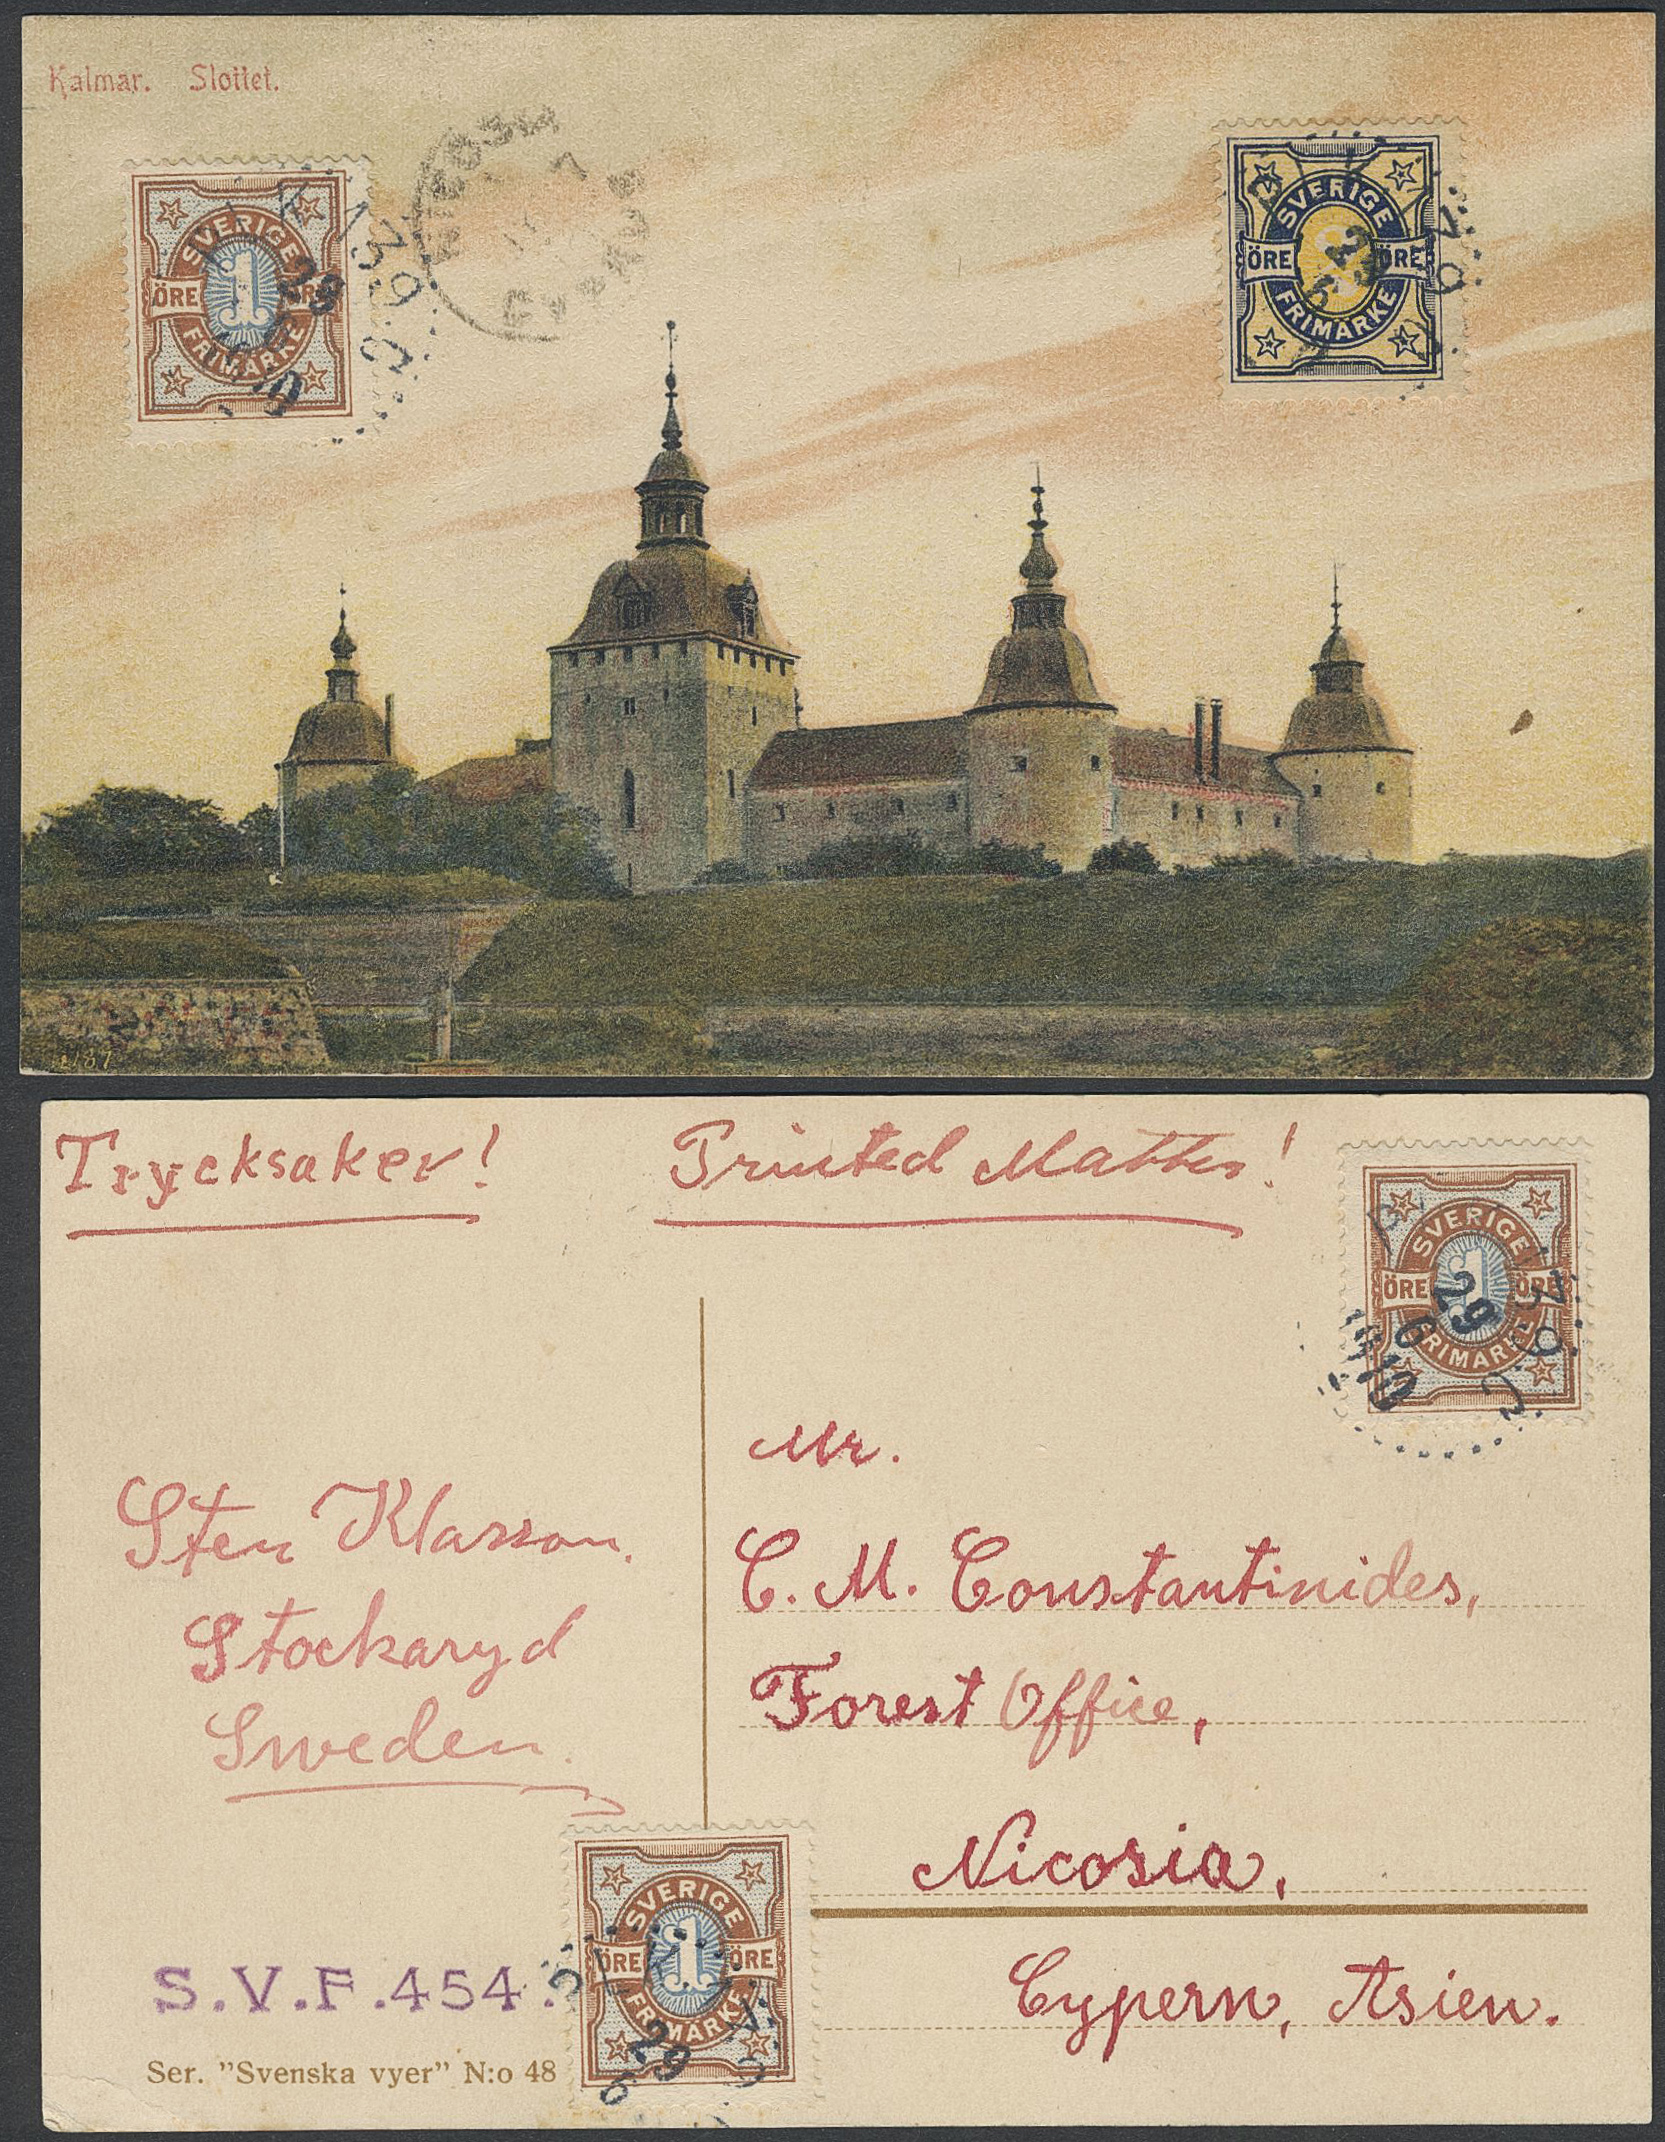 Kalmar. Slottet.
SVERIGE
1
ÖRE ÖRE
FRIMÄRKE
139
29
SVERIGE
ÖRE ÖRE
FRIMÄRKE
2187
Trycksaker! Printed Matter!
SVERIGE
1
ÖRE ÖRE
FRIMÄRKE
29
6
1910
Mr.
C. M. Constantinides,
Forest Office,
Nicosia,
Cypern, Asien.
Sten Klasson.
Stockaryd
Sweden.
S.V.F.454.
Ser. "Svenska vyer" N:o 48
SVERIGE
1
ÖRE ÖRE
FRIMÄRKE
29
6